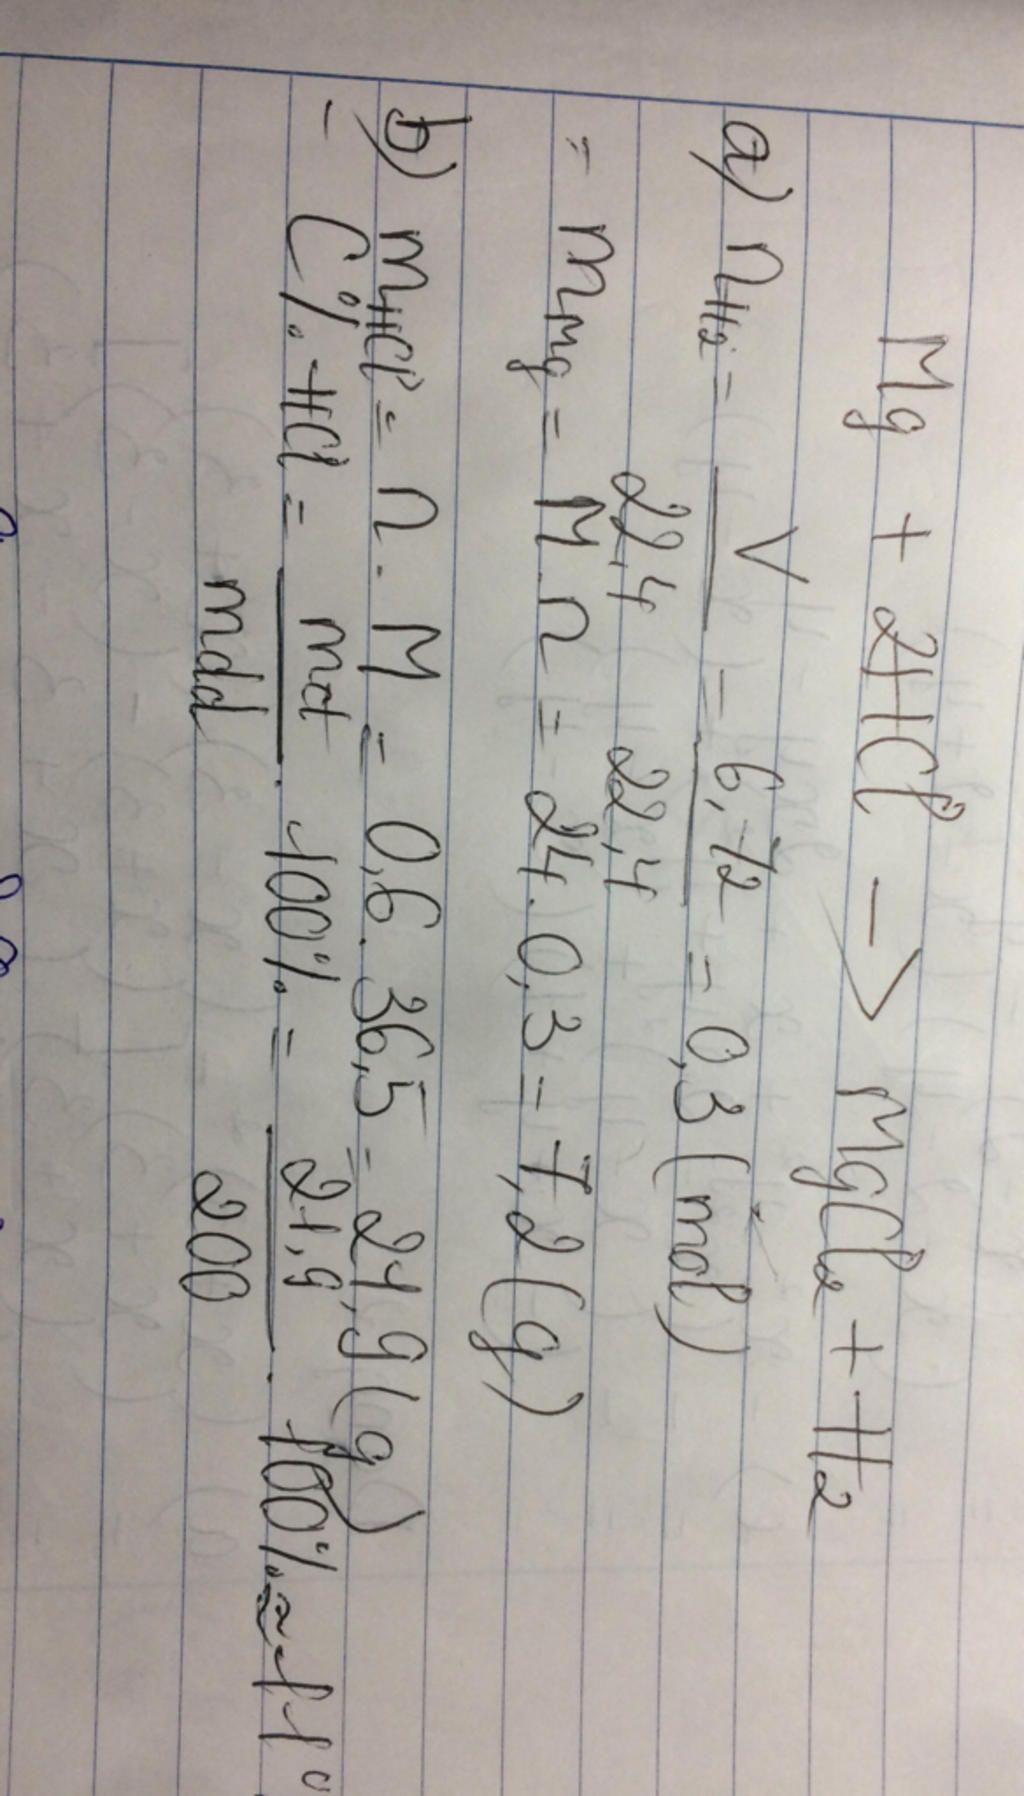 Mg + 2HCl -> MgCl2 + H2
a) nH2 = V / 22,4 = 6,72 / 22,4 = 0,3 (mol)
= mMg = M.n = 24.0,3 = 7,2 (g)
b) mHCl = n.M = 0,6.36,5 = 21,9 (g)
- C% HCl = mct / mdd . 100% = 21,9 / 200 . 100% ≈ 11